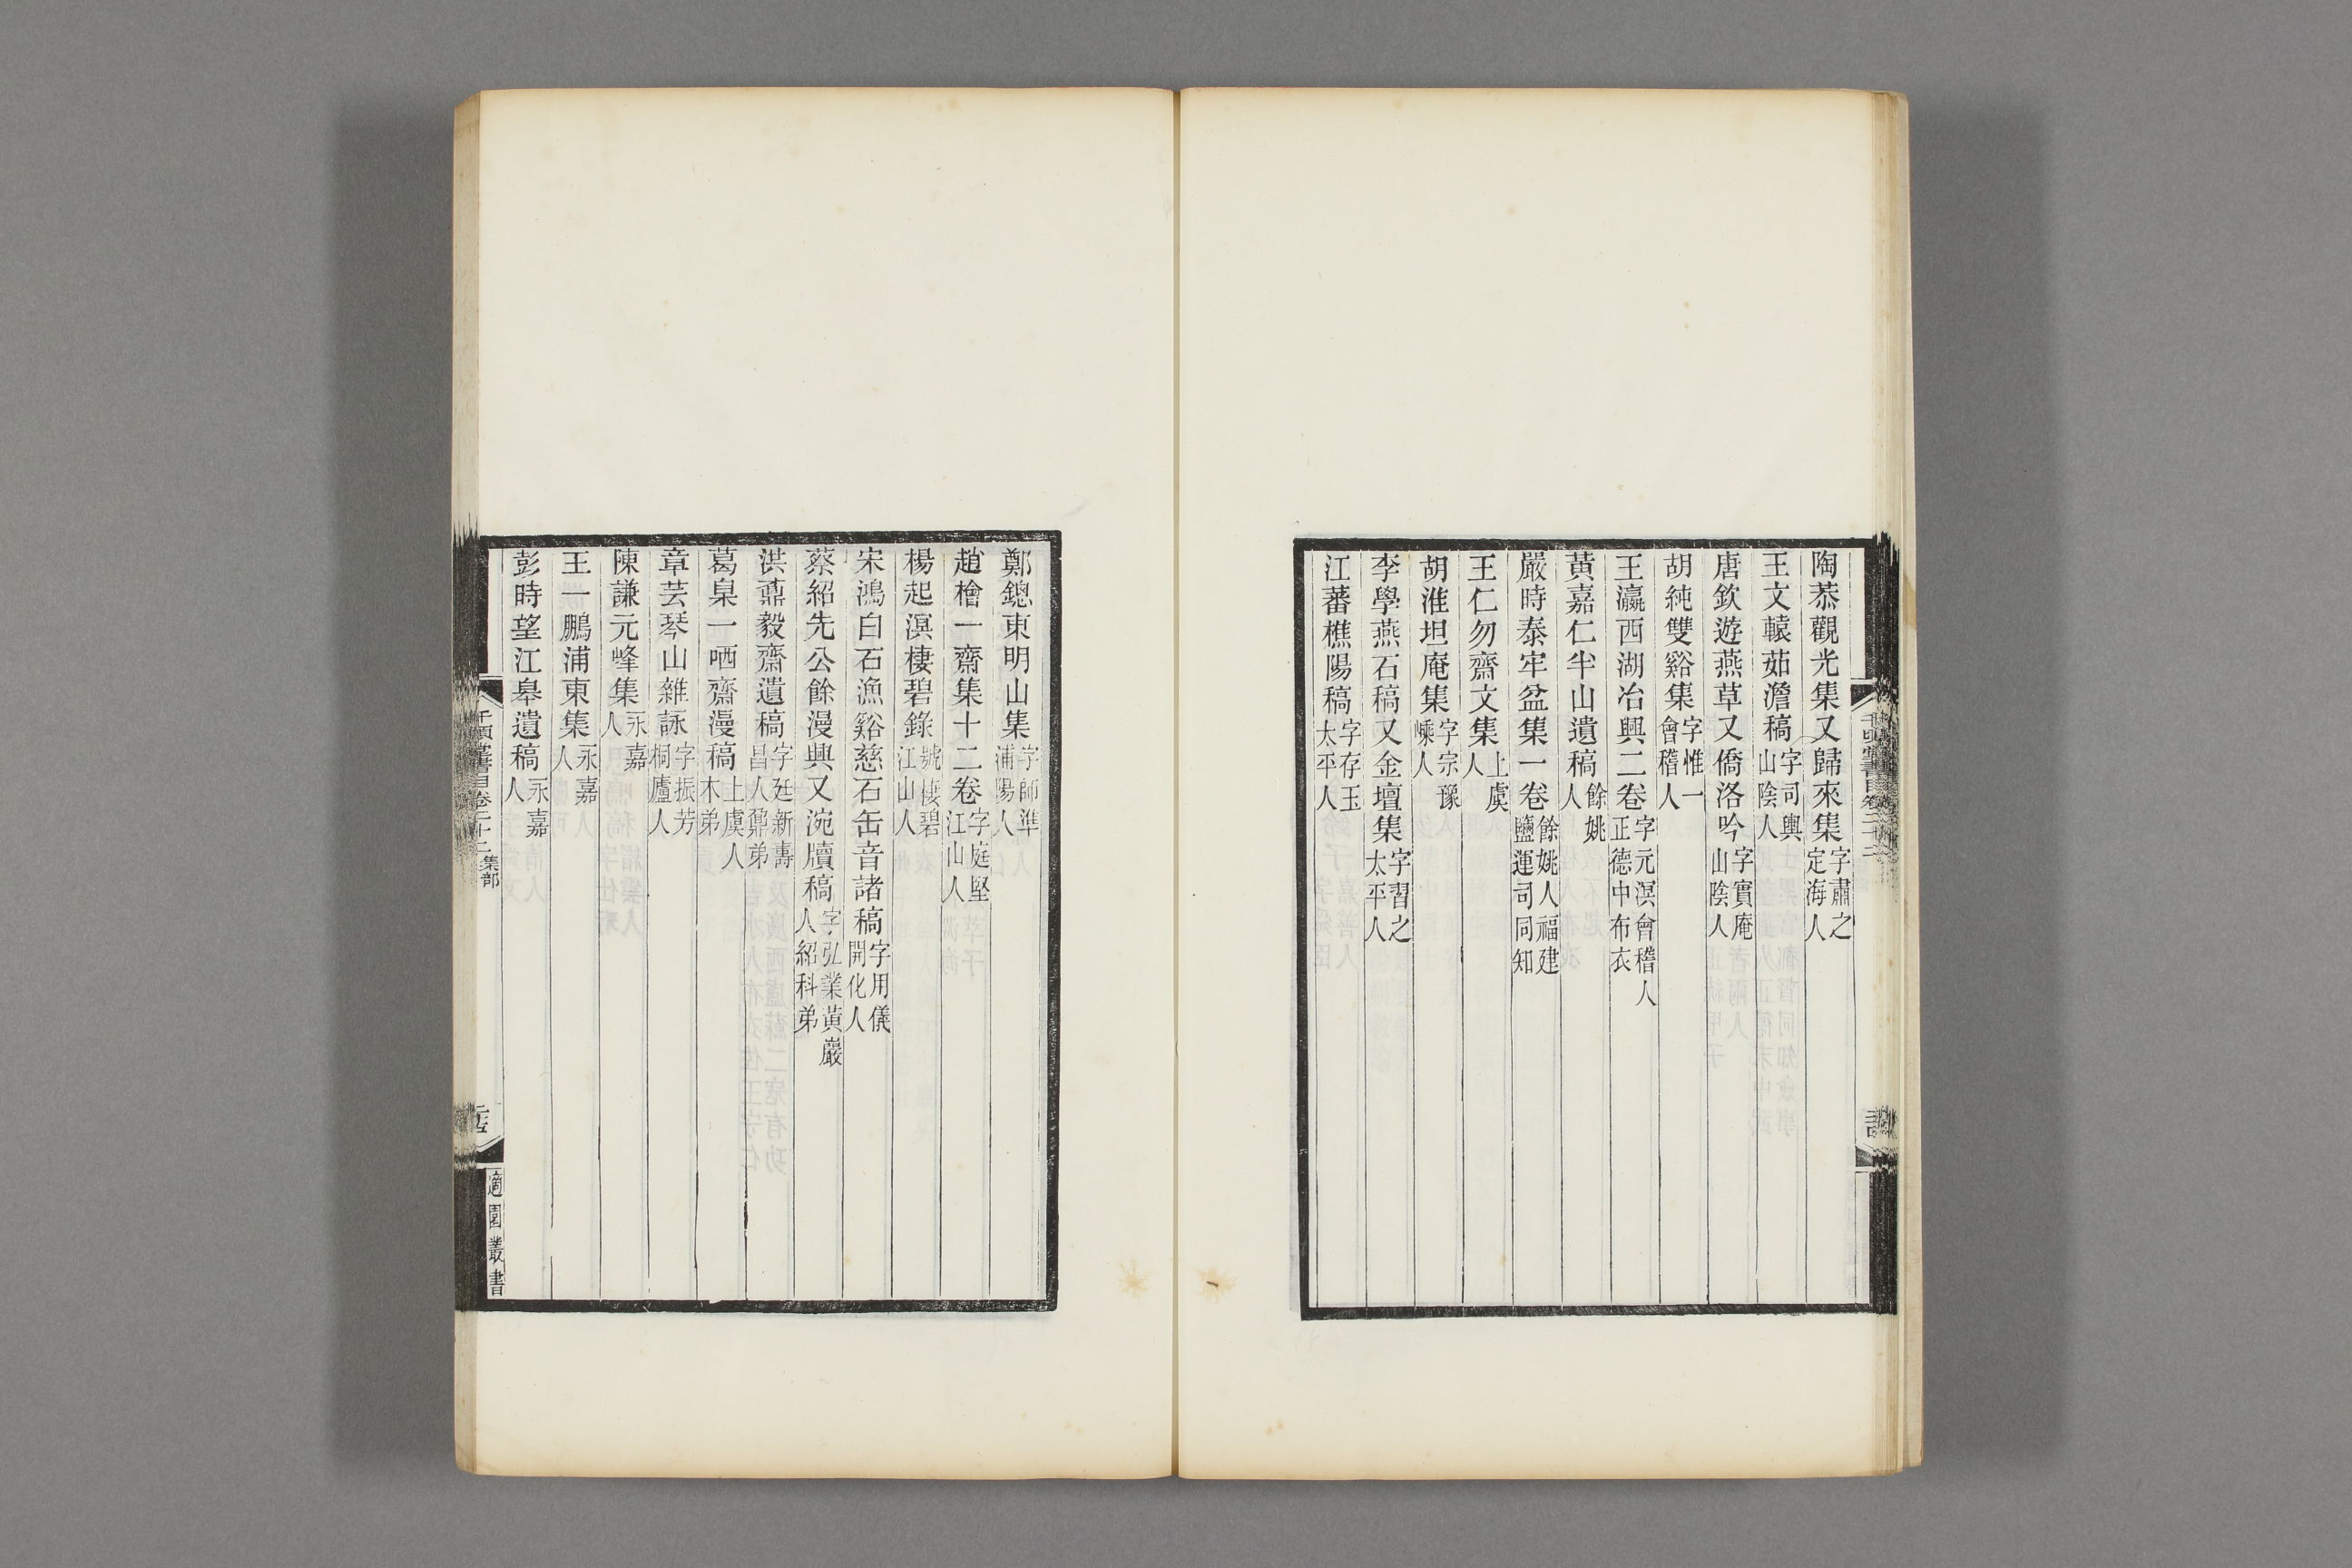 陶恭觀光集又歸來集字肅之定海人
王文轅茹澹稿字司輿山陰人
唐欽遊燕草又僑洛吟字實庵山陰人
胡純雙谿集字惟一會稽人
王瀛西湖冶興二卷字元溟會稽人正德中布衣
黃嘉仁半山遺稿餘姚人
嚴時泰牢盆集一卷餘姚人福建鹽運司同知
王仁勿齋文集上虞人
胡淮坦庵集字宗豫嵊人
李學燕石稿又金壇集字習之太平人
江蕃樵陽稿字存玉太平人
鄭鏓東明山集字師準浦陽人
趙檜一齋集十二卷字庭堅江山人
楊起溟棲碧錄號棲碧江山人
宋鴻白石漁谿慈石缶音諸稿字用儀開化人
蔡紹先公餘漫興又浣牘稿字弘業黃巖人紹科弟
洪鼐毅齋遺稿字廷新壽昌人鼐弟
葛臬一哂齋漫稿上虞人木弟
章芸琴山雜詠字振芳桐廬人
陳謙元峰集永嘉人
王一鵬浦東集永嘉人
彭時望江皋遺稿永嘉人
千頃堂書目卷二十二 集部
適園叢書